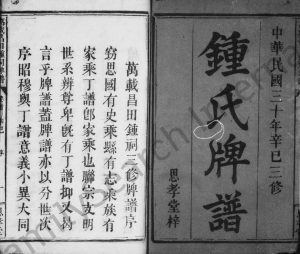 中華民國三十年辛巳三修
鍾氏牌譜
思孝堂梓
萬載昌田鍾祠三修牌譜序
竊思國有史乘縣有志乘族有
家乘丁譜卽家乘也聯宗支明
世系辨尊卑旣有丁譜抑又
言乎牌譜蓋牌譜亦以分世次
序昭穆與丁譜意義小異大同